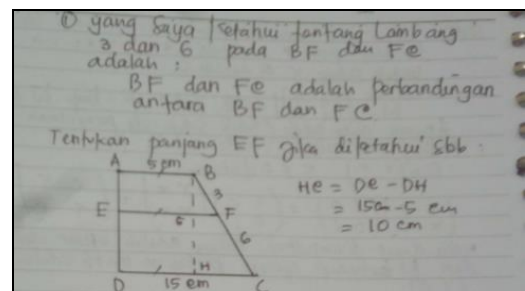 ① yang saya ketahui tentang Lambang
3 dan 6 pada BF dan FC
adalah :
BF dan FC adalah perbandingan
antara BF dan FC
Tentukan panjang EF jika diketahui sbb :
A 5 cm B
HC = DC - DH
3
= 15cm - 5 cm
E 5 F
= 10 cm
6
H
D 15 cm C